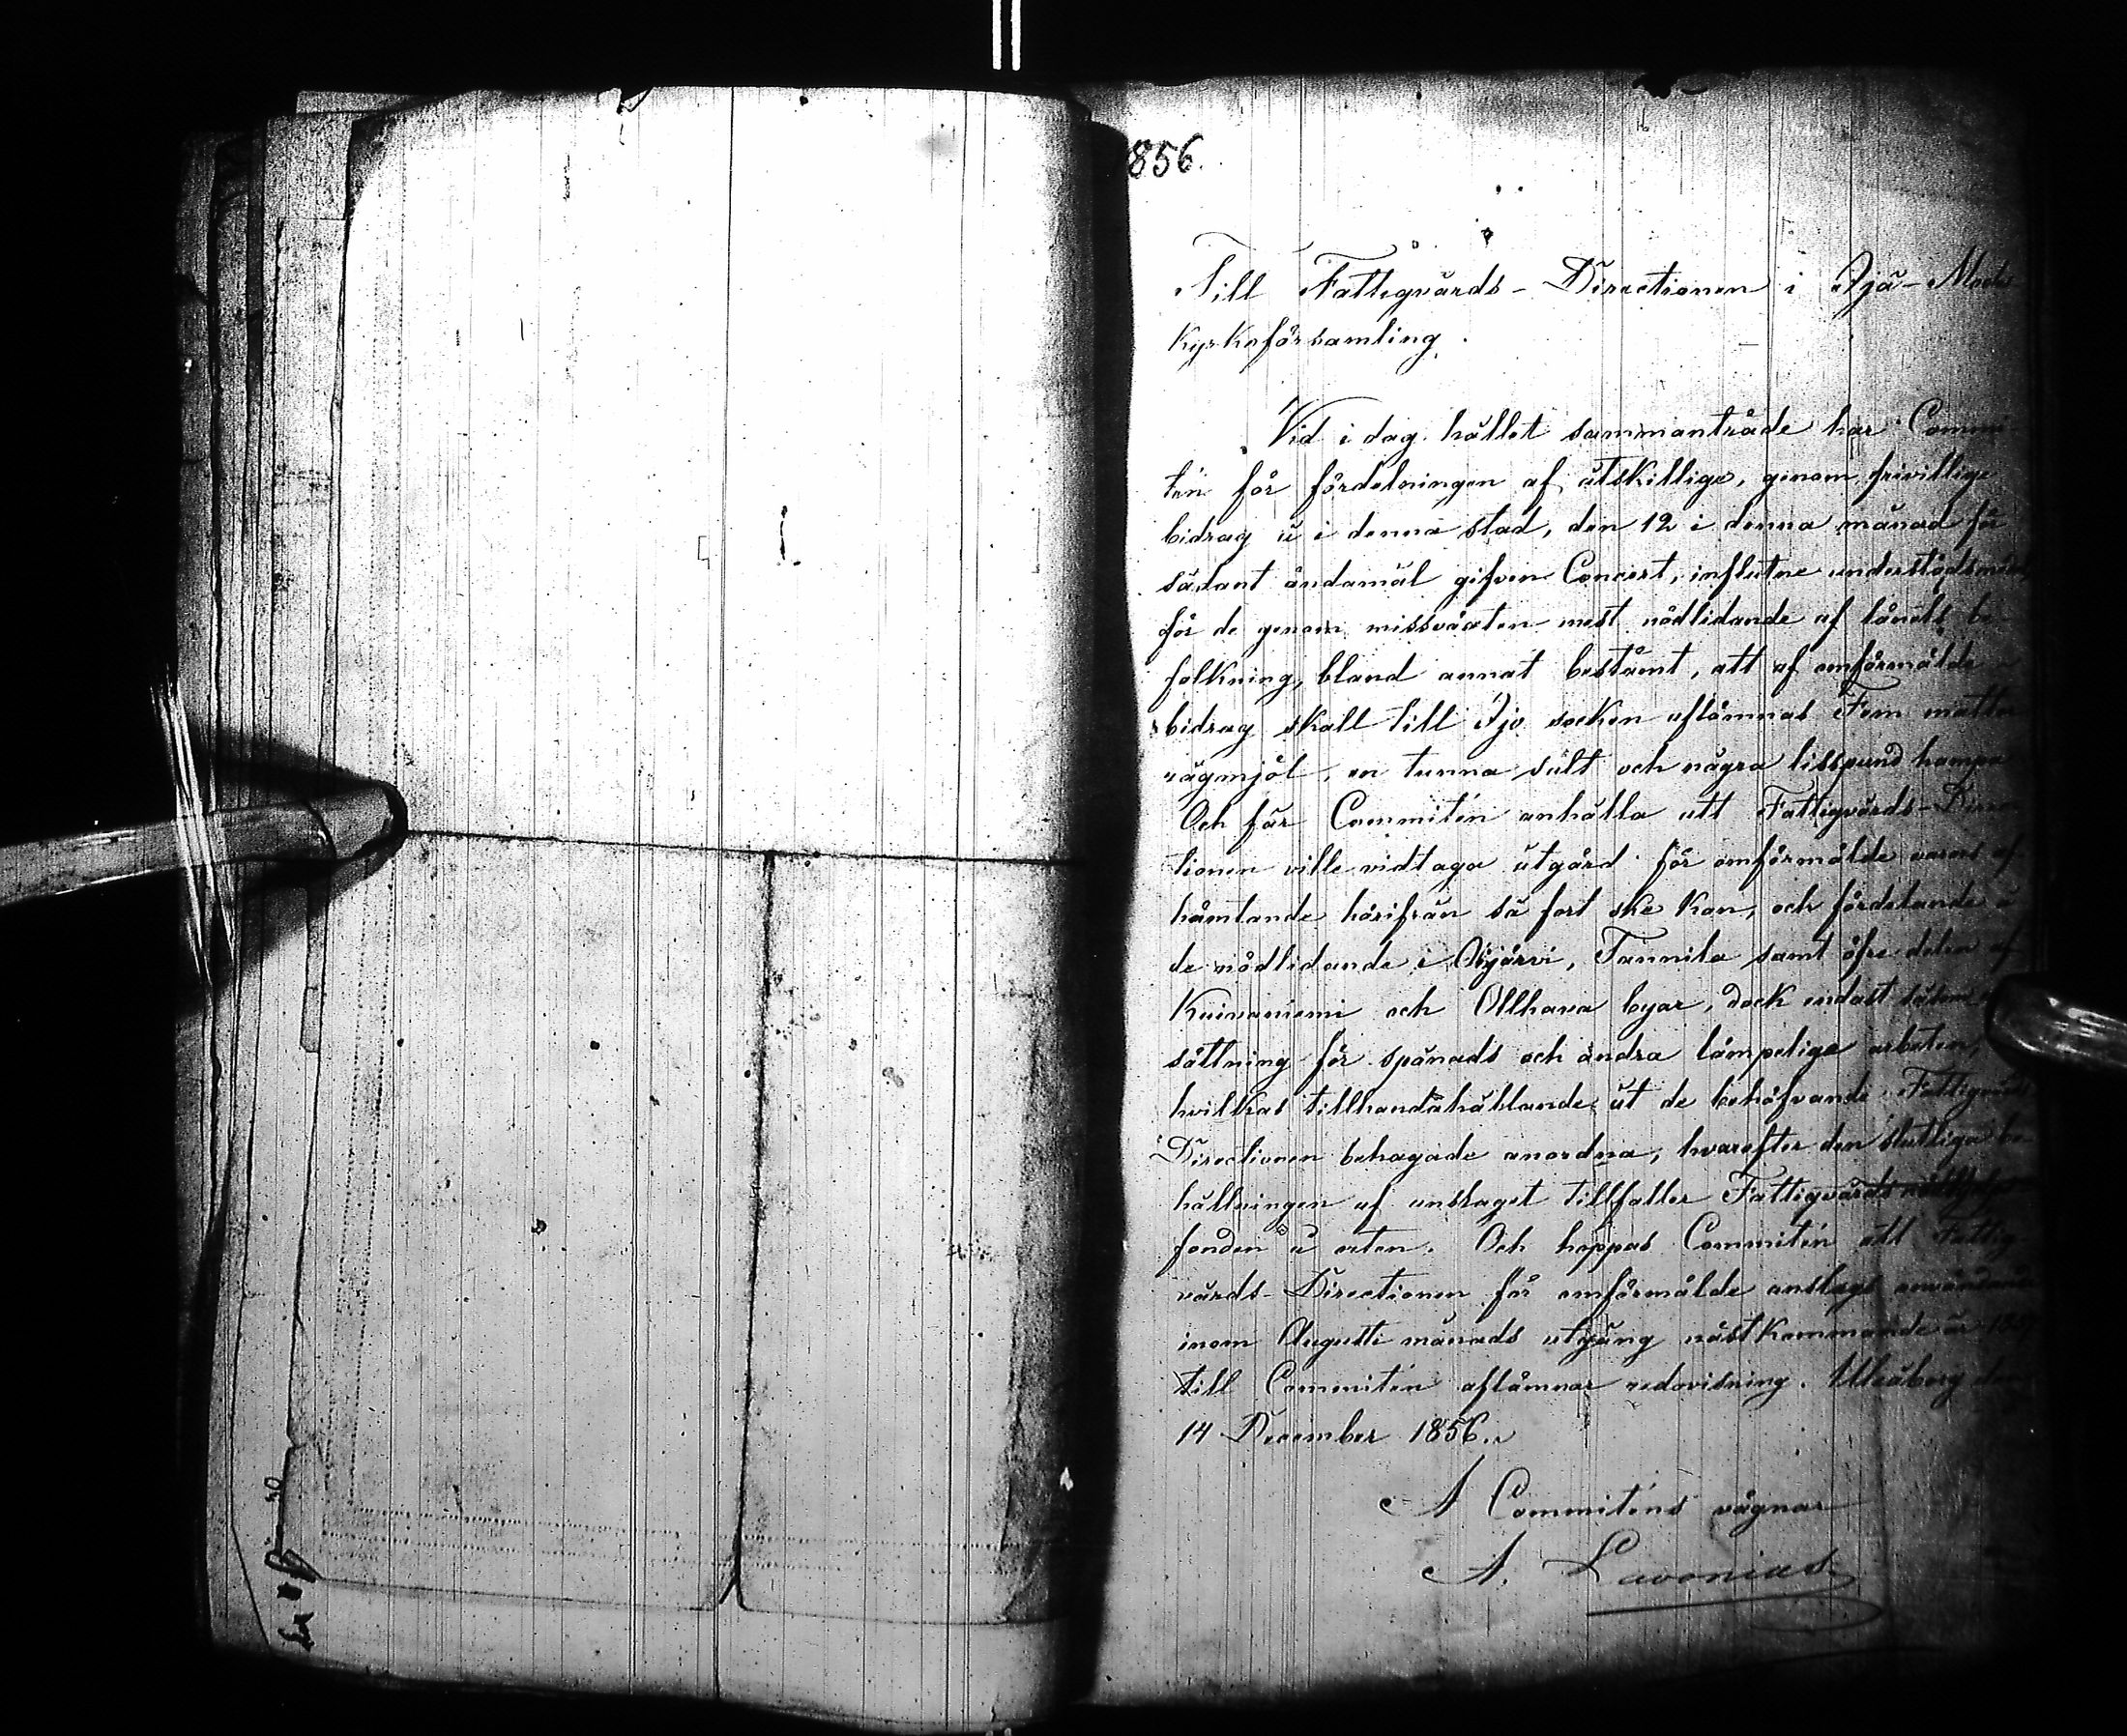 1856.
Till Fattigvårds-Directionen i Ijå-Moder
kyrkoförsamling.
Vid i dag hållet sammanträde har Commi-
tén för fördelningen af åtskillige, genom frivillige
bidrag å i denna stad, den 12 i denna månad för
sådant ändamål gifven Concert, influtne understöds
för de genom missväxten mest nödlidande af länets be-
folkning, bland annat bestämt, att af omförmälde
bidrag skall till Ijo socken aflämnas Fem mattor
rågmjöl, en tunna salt och några lisspund hampa
Och får Commitén anhålla att Fattigvårds-Direc-
tionen ville vidtaga åtgärd för omförmälde varors af-
hämtande härifrån så fort ske kan, och fördelande å
de nödlidande i Oijärvi, Tannila samt öfre delen af
Kuivaniemi och Olhava byar, dock endast såsom er-
sättning för spånads och andra lämpeliga arbeten,
hvilkas tillhandahållande åt de behöfvande Fattigvårds
Directionen behagade anordna, hvarefter den slutliga be-
hållningen af anslaget tillfaller Fattigvårds
fonden å orten. Och hoppas Commitén att Fattig-
vårds-Directionen för omförmälde anslags användande
inom Augusti månads utgång nästkommande år
till Commitén aflämnar redovisning. Uleåborg den
14 December 1856.
Å Commiténs vägnar
A. Lavonius